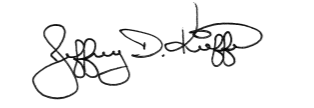 Jeffrey D. Kieffer